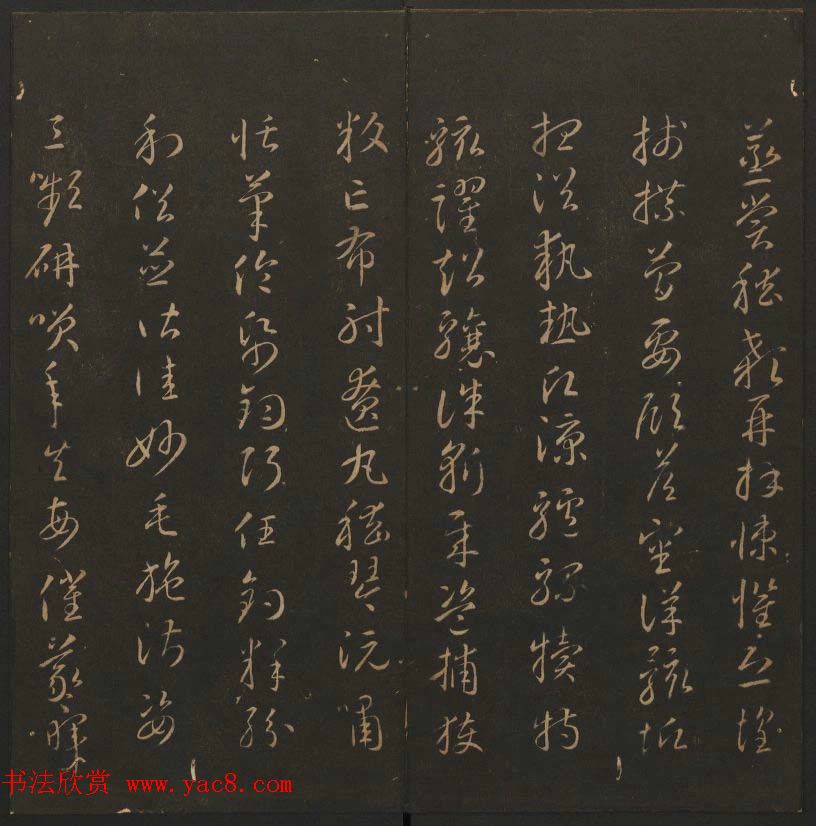 蒸嘗稽顙再拜悚懼恐惶
牋牒簡要顧答審詳骸垢
想浴執熱願涼驢騾犢特
駭躍超驤誅斬賊盜捕獲
叛亡布射遼丸嵇琴阮嘯
恬筆倫紙鈞巧任釣釋紛
利俗並皆佳妙毛施淑姿
工顰妍笑年矢每催羲暉
书法欣赏 www.yac8.com